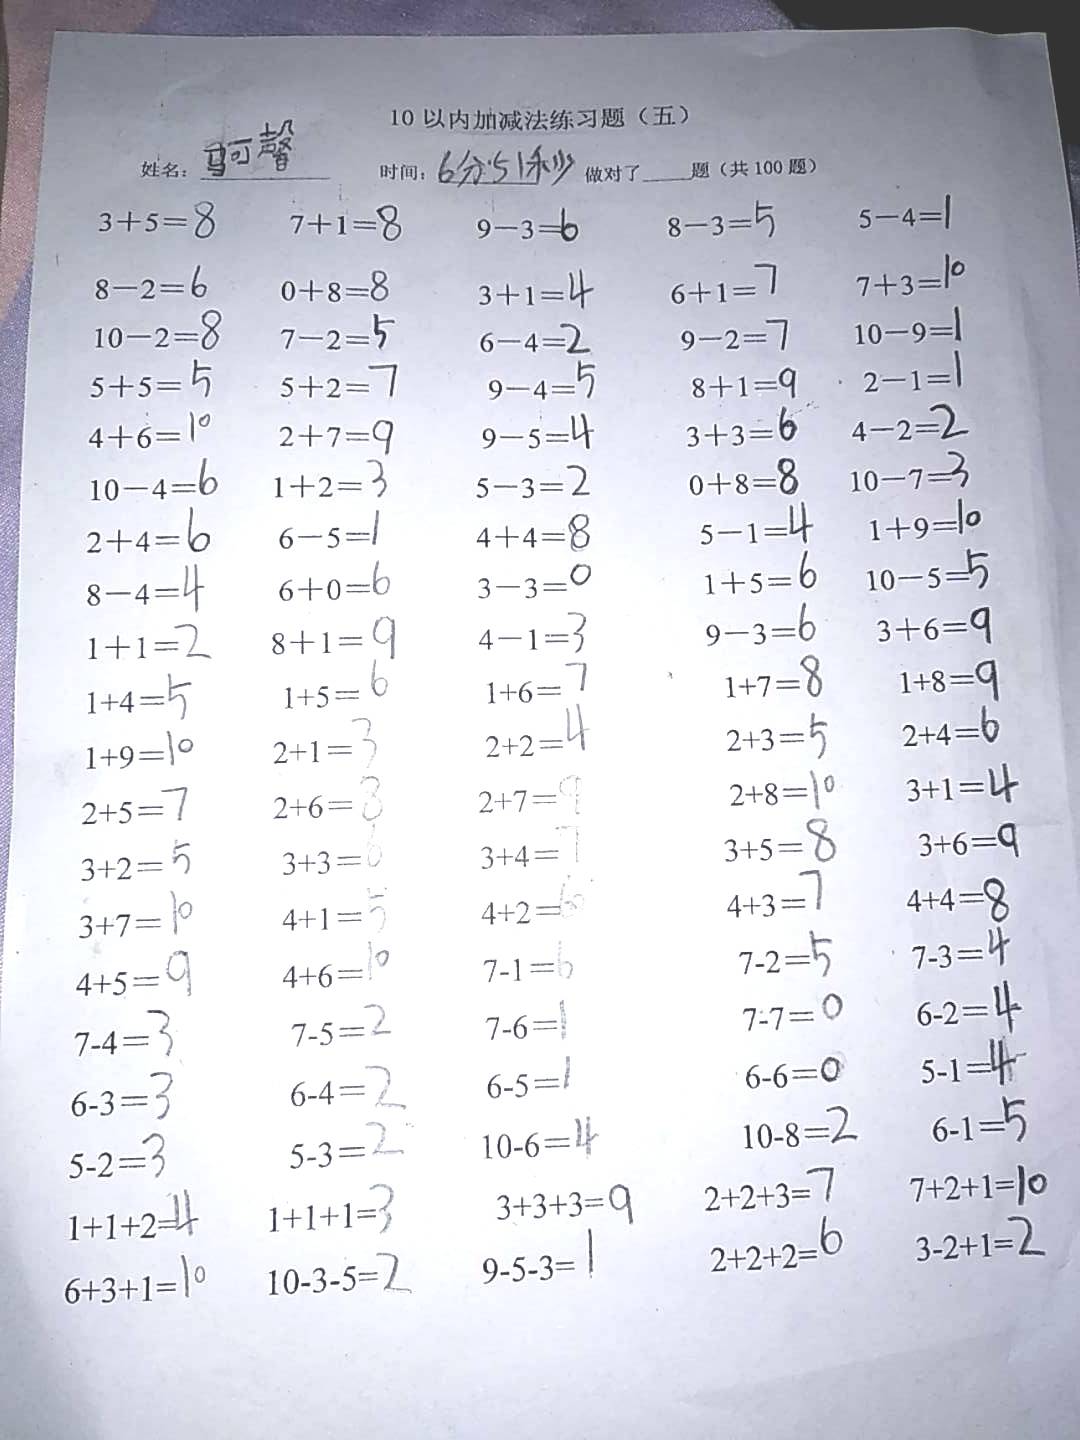 10 以内加减法练习题（五）
姓名：可馨 时间：6分51秒 做对了____题（共 100 题）
3＋5＝8 7＋1＝8 9－3＝6 8－3＝5 5－4＝1
8－2＝6 0＋8＝8 3＋1＝4 6＋1＝7 7＋3＝10
10－2＝8 7－2＝5 6－4＝2 9－2＝7 10－9＝1
5＋5＝5 5＋2＝7 9－4＝5 8＋1＝9 2－1＝1
4＋6＝10 2＋7＝9 9－5＝4 3＋3＝6 4－2＝2
10－4＝6 1＋2＝3 5－3＝2 0＋8＝8 10－7＝3
2＋4＝6 6－5＝1 4＋4＝8 5－1＝4 1＋9＝10
8－4＝4 6＋0＝6 3－3＝0 1＋5＝6 10－5＝5
1＋1＝2 8＋1＝9 4－1＝3 9－3＝6 3＋6＝9
1+4＝5 1+5＝6 1+6＝7 1+7＝8 1+8＝9
1+9＝10 2+1＝3 2+2＝4 2+3＝5 2+4＝6
2+5＝7 2+6＝8 2+7＝9 2+8＝10 3+1＝4
3+2＝5 3+3＝6 3+4＝7 3+5＝8 3+6＝9
3+7＝10 4+1＝5 4+2＝6 4+3＝7 4+4＝8
4+5＝9 4+6＝10 7-1＝6 7-2＝5 7-3＝4
7-4＝3 7-5＝2 7-6＝1 7-7＝0 6-2＝4
6-3＝3 6-4＝2 6-5＝1 6-6＝0 5-1＝4
5-2＝3 5-3＝2 10-6＝4 10-8＝2 6-1＝5
1+1+2=4 1+1+1=3 3+3+3=9 2+2+3=7 7+2+1=10
6+3+1=10 10-3-5=2 9-5-3=1 2+2+2=6 3-2+1=2